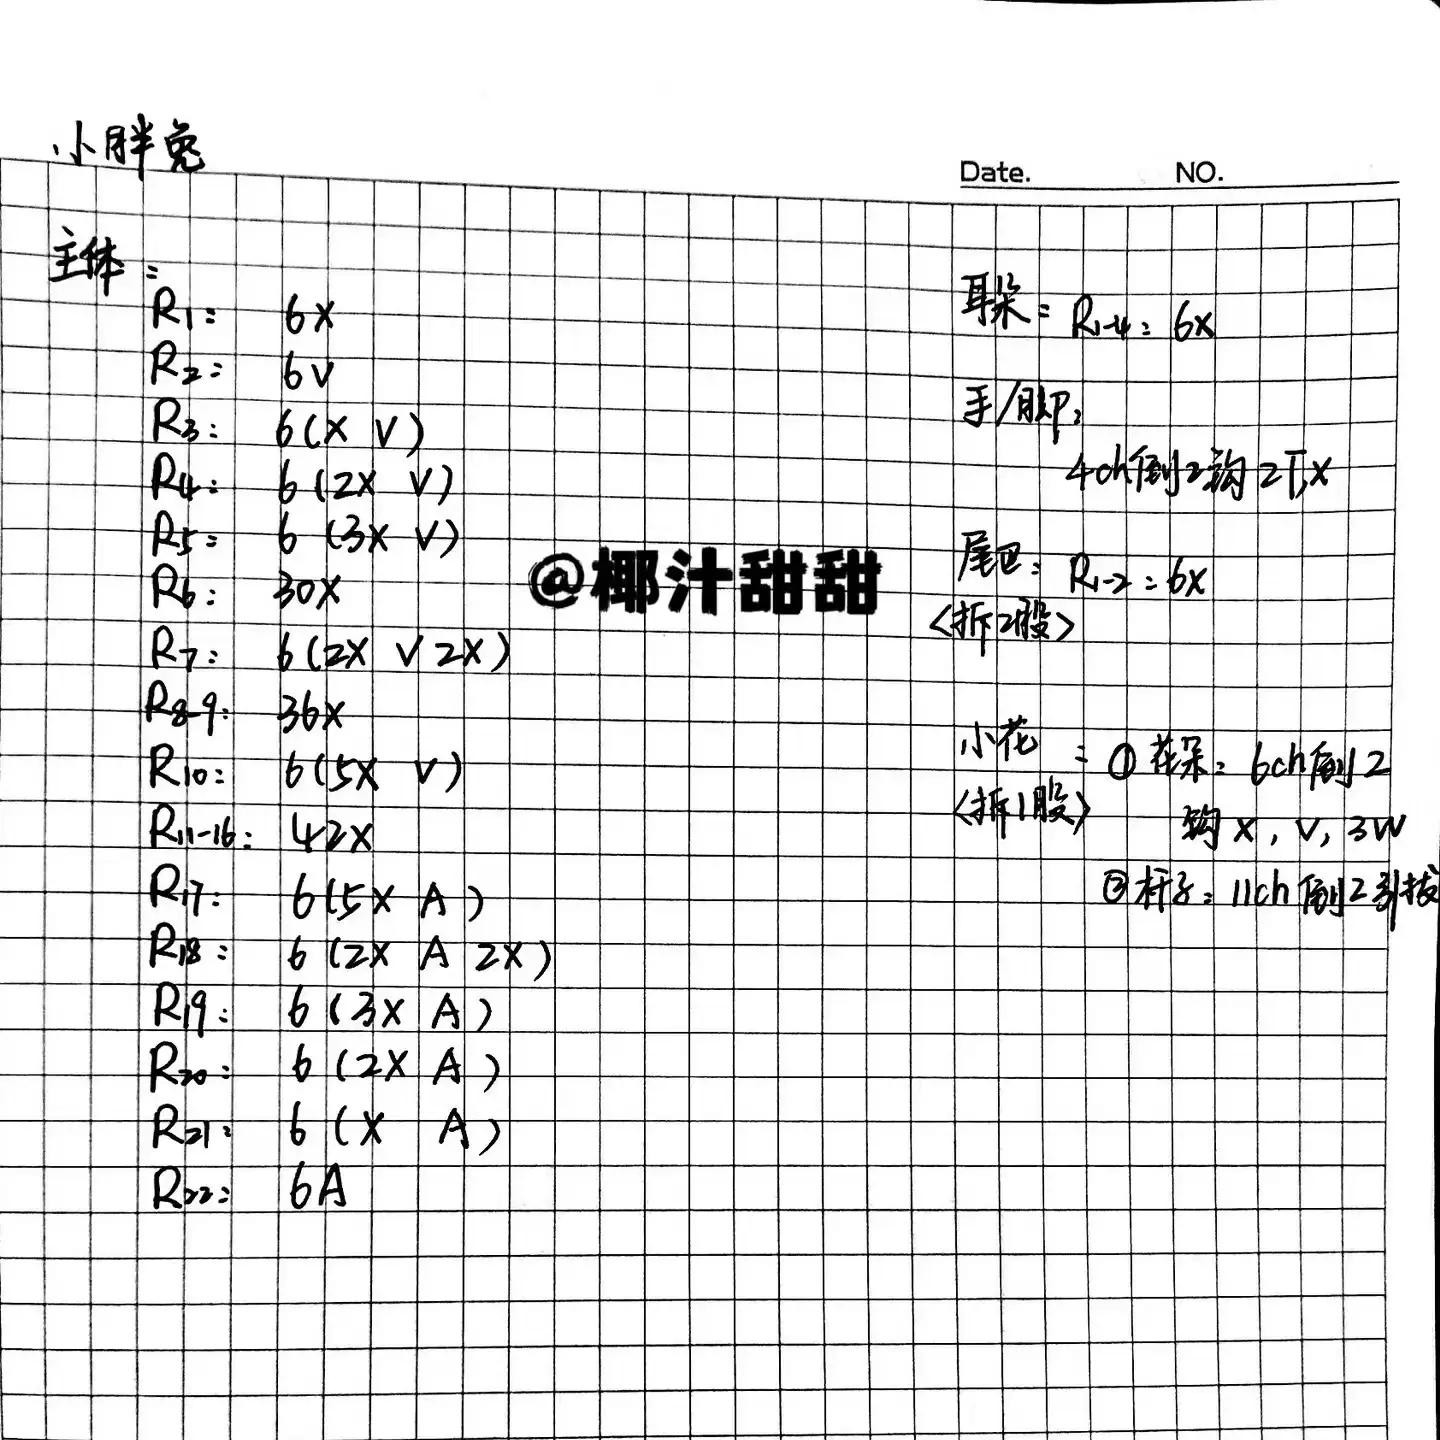 小胖兔
Date. NO.
主体：
R1： 6X
R2： 6V
R3： 6(X V)
R4： 6(2X V)
R5： 6(3X V)
R6： 30X
R7： 6(2X V 2X)
R8-9： 36X
R10： 6(5X V)
R11-16： 42X
R17： 6(5X A)
R18： 6(2X A 2X)
R19： 6(3X A)
R20： 6(2X A)
R21： 6(X A)
R22： 6A
@椰汁甜甜
耳朵：R1-4：6X
手/脚：
4ch倒2钩2X
尾巴：R1-2：6X
<拆2股>
小花：①花朵：6ch倒2
<拆1股> 钩X，V，3W
②杆子：11ch倒2引拔